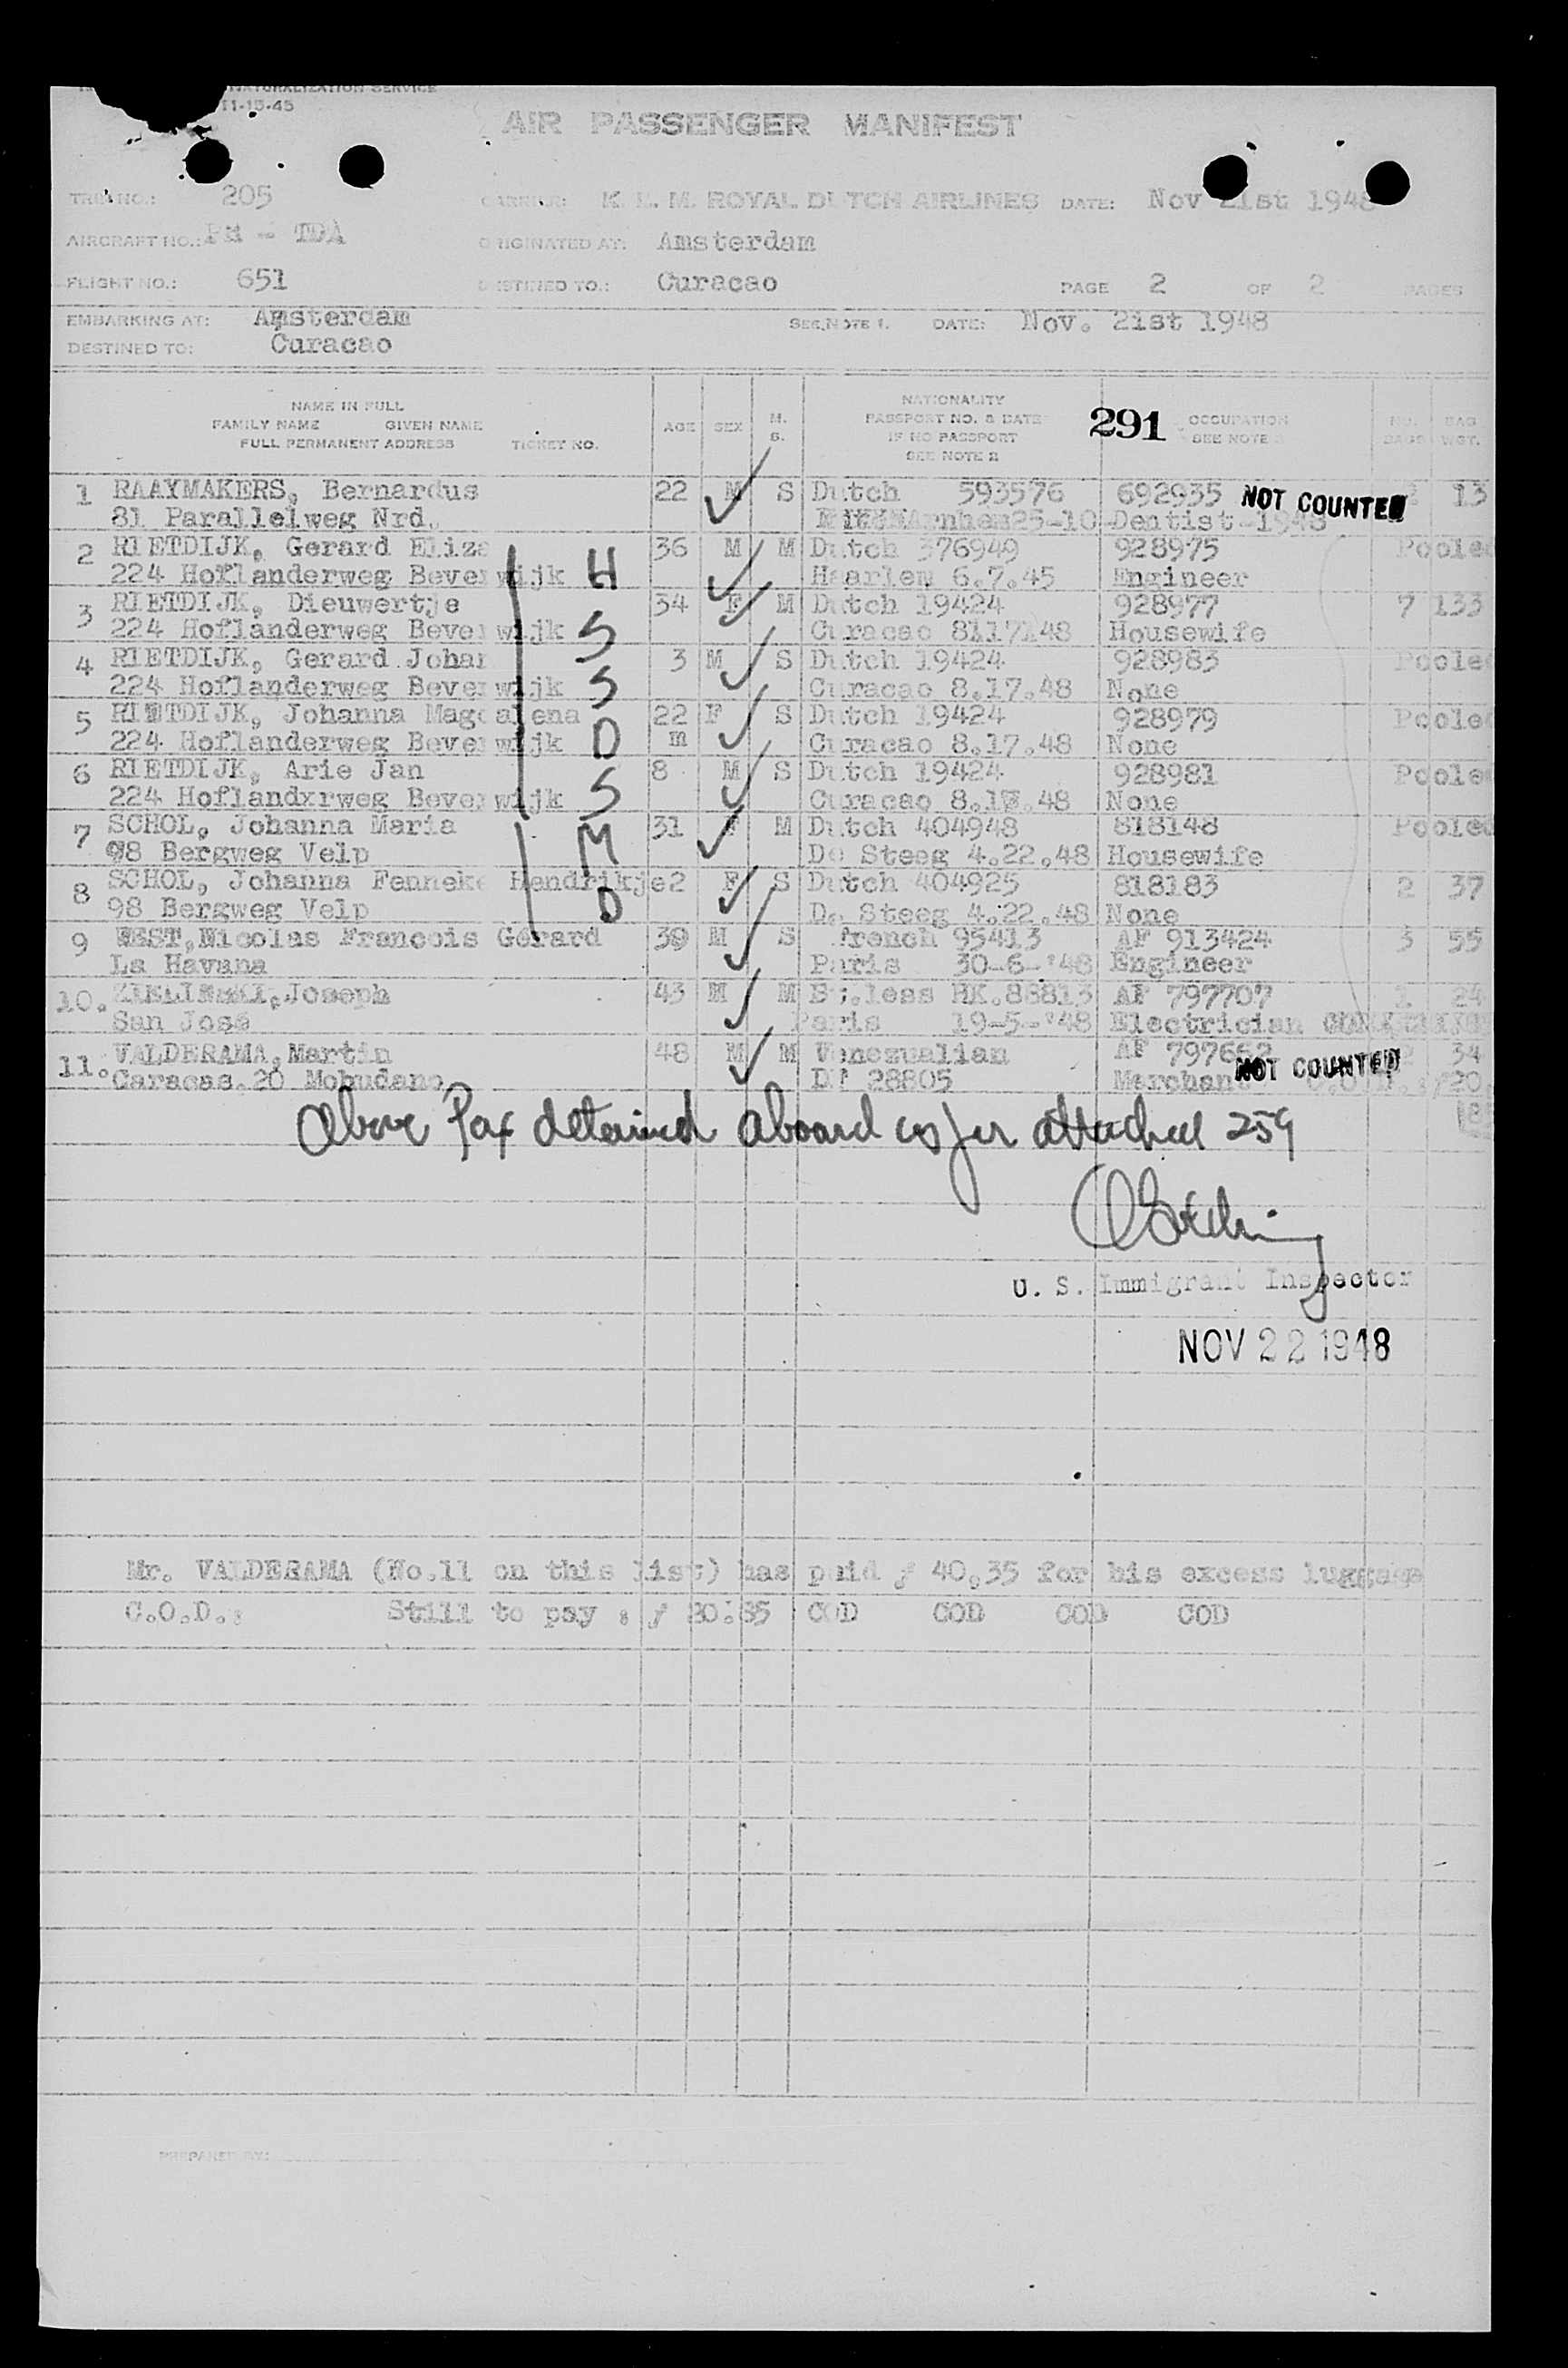 NATURALIZATION SERVICE
11-15-45
AIR PASSENGER MANIFEST
TRIP NO.: 205 CARRIER: K. L. M. ROYAL DUTCH AIRLINES DATE: Nov 21st 1948
AIRCRAFT NO.: PH - TDA ORIGINATED AT: Amsterdam
FLIGHT NO.: 651 DESTINED TO.: Curacao PAGE 2 OF 2 PAGES
EMBARKING AT: Amsterdam SEE NOTE 1. DATE: Nov. 21st 1948
DESTINED TO: Curacao
NAME IN FULL
FAMILY NAME GIVEN NAME
FULL PERMANENT ADDRESS TICKET NO.
AGE SEX M. S.
NATIONALITY
PASSPORT NO. & DATE
IF NO PASSPORT
SEE NOTE 2
291
OCCUPATION
SEE NOTE
NO. BAGS BAG WGT.
1 RAAYMAKERS, Bernardus 22 M S Dutch 593576 692935 NOT COUNTED 13
81 Parallelweg Nrd. Arnhem 25-10- Dentist -1948
2 RIETDIJK, Gerard Eliza 36 M M Dutch 376949 928975 Pooled
224 Hoflanderweg Beverwijk H Haarlem 6.7.45 Engineer
3 RIETDIJK, Dieuwertje 34 F M Dutch 19424 928977 7 133
224 Hoflanderweg Beverwijk S Curacao 8117148 Housewife
4 RIETDIJK, Gerard Johan 3 M S Dutch 19424 928983 Pooled
224 Hoflanderweg Beverwijk S Curacao 8.17.48 None
5 RIETDIJK, Johanna Magdalena 22 F S Dutch 19424 928979 Pooled
224 Hoflanderweg Beverwijk D m Curacao 8.17.48 None
6 RIETDIJK, Arie Jan 8 M S Dutch 19424 928981 Pooled
224 Hoflandxrweg Beverwijk S Curacao 8.17.48 None
7 SCHOL, Johanna Maria 31 F M Dutch 404948 818148 Pooled
98 Bergweg Velp M De Steeg 4.22.48 Housewife
8 SCHOL, Johanna Fenneke Hendrikje 2 F S Dutch 404925 818183 2 37
98 Bergweg Velp D De Steeg 4.22.48 None
9 WEST, Nicolas Francois Gérard 39 M S French 95413 AF 913424 3 55
La Havana Paris 30-6-'48 Engineer
10. ZIELINSKI, Joseph 43 M M St.less HK.88813 AF 797707 1 24
San José Paris 19-5-'48 Electrician
11. VALDERAMA, Martin 48 M M Venezualian AF 797662 34
Caracas. 20 Mohudano DI 28805 Merchant NOT COUNTED
Above Pax detained aboard as per attached 259
U. S. Immigrant Inspector
NOV 22 1948
Mr. VALDERAMA (No.11 on this list) has paid ƒ 40,35 for his excess luggage
C.O.D.: Still to pay : ƒ 20.65 COD COD COD COD
PREPARED BY: